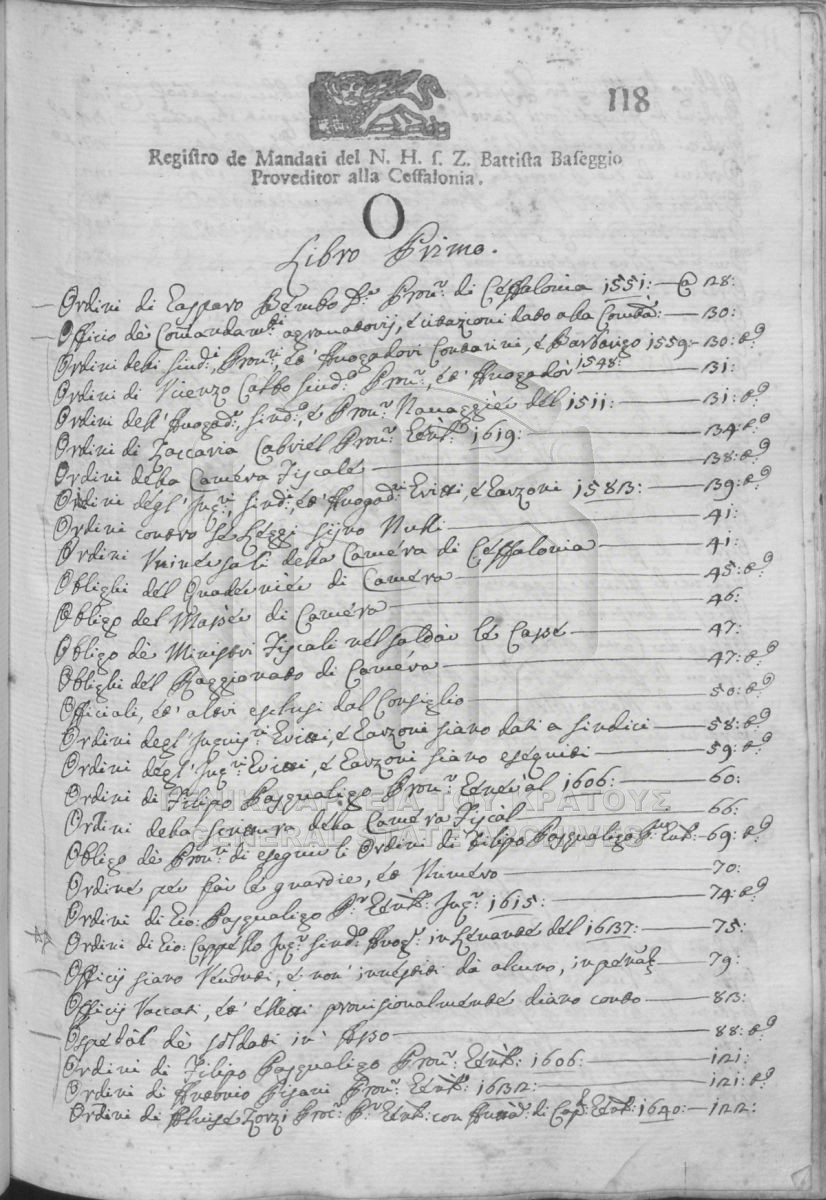 118
Regiſtro de Mandati del N. H. ſ. Z. Battiſta Baſeggio
Proveditor alla Ceffalonia.
O
Libro Primo.
Ordini di Gasparo Bembo Pron.r di Ceffalonia 1551: — C 28:
Officio dè Comandam.ti agravatorij, è citazioni dato alla — 30:
Ordini delli Sind.i, Pron.ri, et Avogadori Contarini, è Barbarigo 1559 — 30: t.o
Ordini di Vicenzo Sind.o Pron.r, et Avogador 1548: — 31:
Ordini dell' Avogad.r, Sind.o, è Pron.r Navaggier del 1511: — 31: t.o
Ordini di Zaccaria Gabriel Pron.r 1619: — 34: t.o
Ordini della Camera Fiscale — 38: t.o
Ordini degl' Inq.ri, Sind.i, et Avogad.ri Gritti, è Garzoni 1583: — 39: t.o
Ordini contro le Leggi sijno Nulli — 41:
Ordini Universali della Camera di Ceffalonia — 41:
Oblighi del Quadernier di Camera — 45: t.o
Obligo del Masser di Camera — 46:
Obligo dè Ministri Fiscali nel saldar le Casse — 47:
Oblighi del Raggionato di Camera — 47: t.o
Officiali, et altri esclusi dal Consiglio — 50: t.o
Ordini degl' Inquis.ri Gritti, è Garzoni siano dati a Sindici — 58: t.o
Ordini degl' Inq.ri Gritti, è Garzoni siano eseguiti — 59: t.o
Ordini di Filipo Pasqualigo Pron.r General 1606: — 60:
Ordini della Scrittura della Camera Fiscal — 66:
Obligo dè Pron.ri di eseguir li Ordini di Filipo Pasqualigo — 69: t.o
Ordine per far le guardie, et Numero — 70:
Ordini di Gio: Pasqualigo Inq.r 1615: — 74: t.o
Ordini di Gio: Cappello Inq.r Sind.o in Levante del 1637: — 75:
Officij siano Venduti, è non' investiti da alcuno, in — 79:
Officij Vaccati, et eletti provisionalmente diano conto — 83:
Ospedal dè soldati in Asso — 88: t.o
Ordini di Filipo Pasqualigo Pron.r 1606: — 121:
Ordini di Antonio Pisani Pron.r 1632: — 121: t.o
Ordini di Alvise Zorzi Proc.r con di Cap. 1640: — 122:
ΓΕΝΙΚΑ ΑΡΧΕΙΑ ΤΟΥ ΚΡΑΤΟΥΣ
GENERAL STATE ARCHIVES